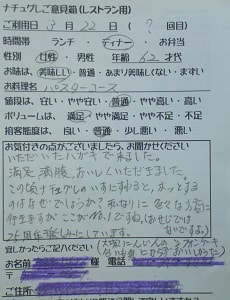 ナチュグレご意見箱(レストラン用)
ご利用日 3月 22日 ( ? 回目)
時間帯 ランチ・ディナー・お弁当
性別 女性・男性 年齢 62才代
お味は 美味しい・普通・あまり美味しくない・まずい
お料理名 パスタコース
値段は 安い・やや安い・普通・やや高い・高い
ボリュームは 満足・やや満足・やや不足・不足
接客態度は 良い・普通・少し悪い・悪い
お気付きの点がございましたら、お聞かせください
いただいたハガキで来ました。
満足、満腹、おいしくいただきました。
この頃ナチュグレのいすにすわると、ホッとする
のはなぜでしょうか?
行きますがここがNo.1ですね。(お世じでは
ないですよ。)
宜しかったらご記入ください
お名前 様 電話
ご住所